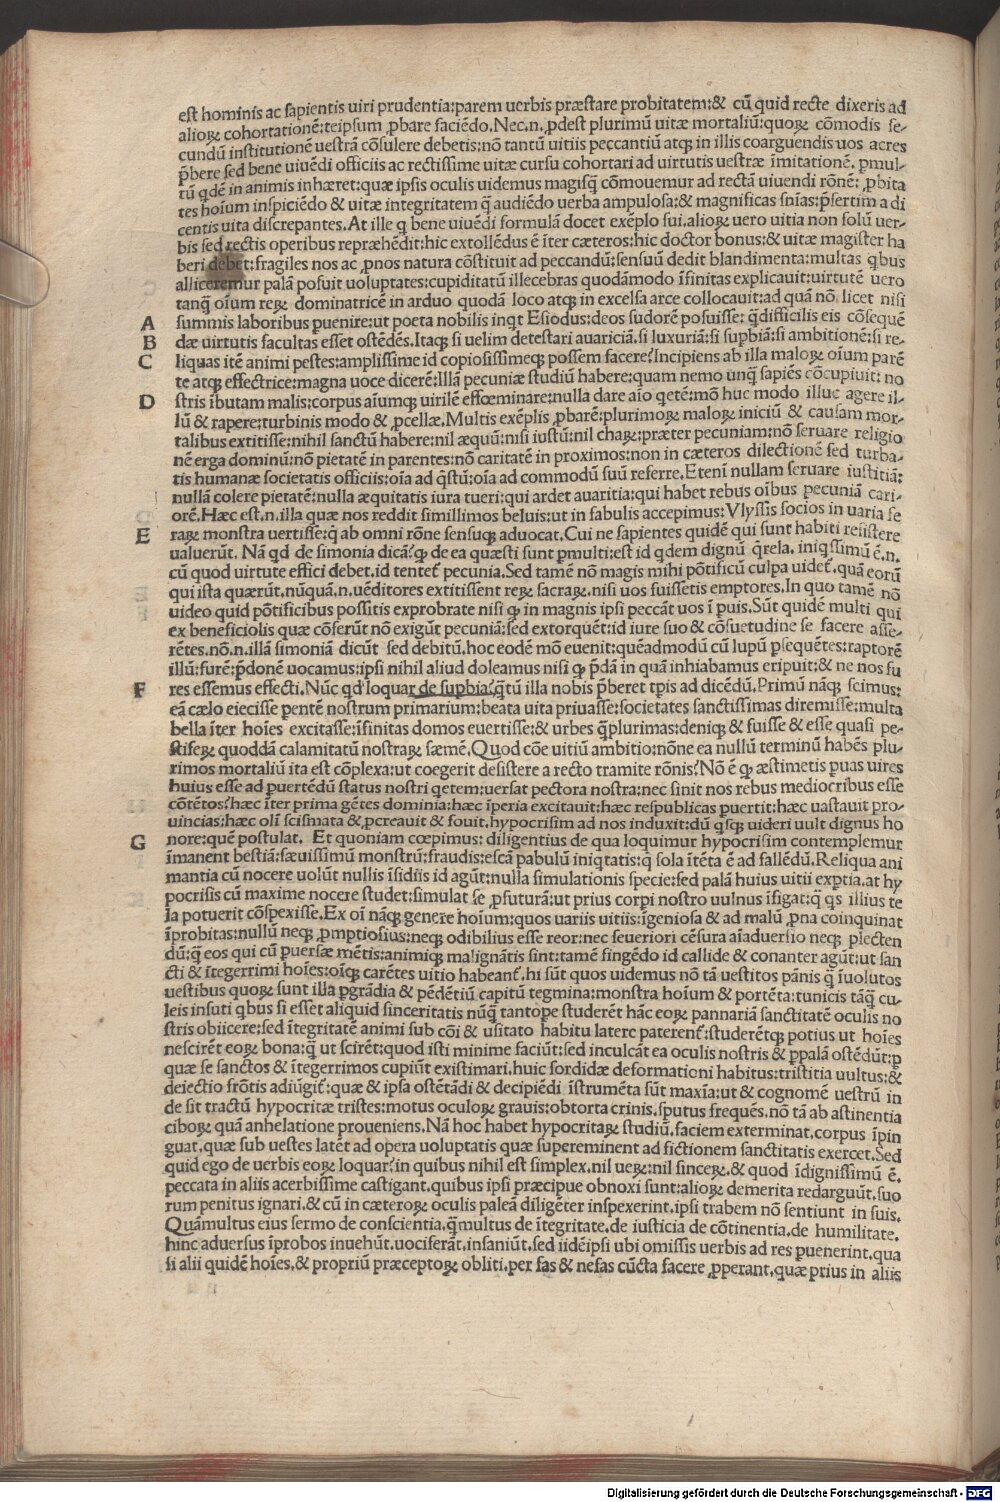 est hominis ac sapientis uiri prudentia:parem uerbis præstare probitatem:& cū quid recte dixeris ad
alioꝝ cohortationē:teipsum ꝓbare faciēdo.Nec.n.ꝓdest plurimū uitæ mortaliū:quoꝝ cōmodis se-
cundū institutionē uestrā cōsulere debetis:nō tantū uitiis peccantiū atqꝫ in illis coarguendis uos acres
p̄bere sed bene uiuēdi officiis ac rectissime uitæ cursu cohortari ad uirtutis uestræ īmitationē.ꝑmul-
tū qdē in animis inhæret:quæ ipsis oculis uidemus magisq̄ cōmouemur ad rectā uiuendi rōnē: ꝓbita
tes hoīum inspiciēdo & uitæ integritatem q̄ audiēdo uerba ampulosa:& magnificas snīas:p̄sertim a di
centis uita discrepantes.At ille q bene uiuēdi formulā docet exēplo sui.alioꝝ uero uitia non solū uer-
bis sed rectis operibus repræhēdit:hic extollēdus ē īter cæteros:hic doctor bonus:& uitæ magister ha
beri debet:fragiles nos ac ꝓnos natura cōstituit ad peccandū:sensuū dedit blandimenta:multas qbus
alliceremur palā posuit uoluptates:cupiditatū illecebras quodāmodo īfinitas explicauit:uirtutē uero
tanq̄ oīum reꝝ dominatricē in arduo quodā loco atqꝫ in excelsa arce collocauit:ad quā nō licet nisi
A summis laboribus ꝑuenire:ut poeta nobilis inqt Esiodus:deos sudorē posuisse: q̄difficilis eis cōsequē
B dæ uirtutis facultas esset ostēdēs.Itaqꝫ si uelim detestari auariciā.si luxuriā:si suꝑbiā:si ambitionē:si re-
C liquas itē animi pestes:amplissime id copiosissimeqꝫ possem facere?Incipiens ab illa maloꝝ oīum parē
te atqꝫ effectrice:magna uoce dicerē:Illā pecuniæ studiū habere:quam nemo unq̄ sapiēs cōcupiuit: no
D stris ībutam malis:corpus aīumqꝫ uirilē effœminare:nulla dare aīo qetē:mō huc modo illuc agere il-
lū & rapere:turbinis modo & ꝓcellæ.Multis exēplis ꝓbarē:plurimoꝝ maloꝝ iniciū & causam mor-
talibus extitisse:nihil sanctū habere:nil æquū:nisi iustū:nil chaꝝ:præter pecuniam:nō seruare religio
nē erga dominū:nō pietatē in parentes:nō caritatē in proximos:non in cæteros dilectionē sed turba-
tis humanæ societatis officiis:oīa ad q̄stū:oīa ad commodū suū referre.Etenī nullam seruare iustitiā:
nullā colere pietatē:nulla æquitatis iura tueri:qui ardet auaritia:qui habet rebus oībus pecuniā cari-
orē.Hæc est.n.illa quæ nos reddit simillimos beluis:ut in fabulis accepimus:Vlyssis socios in uaria fe
E raꝝ monstra uertisse:q̄ ab omni rōne sensuqꝫ aduocat.Cui ne sapientes quidē qui sunt habiti resistere
ualuerūt. Nā qd de simonia dicā?qꝫ de ea quæsti sunt ꝑmulti:est id qdem dignū q̄rela. iniqssimū ē.n.
cū quod uirtute effici debet.id tentet pecunia.Sed tamē nō magis mihi pōtificū culpa uidet.quā eorū
qui ista quærūt.nūquā.n.uēditores extitissent reꝝ sacraꝝ.nisi uos fuissetis emptores.In quo tamē nō
uideo quid pōtificibus possitis exprobrate nisi qꝫ in magnis ipsi peccāt uos ī ꝑuis.Sūt quidē multi qui
ex beneficiolis quæ cōferūt nō exigūt pecuniā:sed extorquēt:id iure suo & cōsuetudine se facere asse-
rētes.nō.n.illā simoniā dicūt sed debitū.hoc eodē mō euenit:quēadmodū cū lupū ꝑsequētes:raptorē
illū:furē:p̄donē uocamus:ipsi nihil aliud doleamus nisi qꝫ p̄dā in quā inhiabamus eripuit:& ne nos fu
F res essemus effecti.Nūc qd loquar de suꝑbia?q̄tū illa nobis p̄beret tꝑis ad dicēdū.Primū nāqꝫ scimus:
eā cælo eiecisse ꝑentē nostrum primarium:beata uita priuasse:societates sanctissimas diremisse:multa
bella īter hoīes excitasse:īfinitas domos euertisse:& urbes q̄plurimas:deniqꝫ & fuisse & esse quasi pe-
stifeꝝ quoddā calamitatū nostraꝝ sæmē.Quod cōe uitiū ambitio:nōne ea nullū terminū habēs plu-
rimos mortaliū ita est cōplexa:ut coegerit desistere a recto tramite rōnis?Nō ē qꝫ æstimetis ꝑuas uires
huius esse ad ꝑuertēdū status nostri qetem:uersat pectora nostra:nec sinit nos rebus mediocribus esse
cōtētos?hæc īter prima gētes dominia:hæc īperia excitauit:hæc respublicas ꝑuertit:hæc uastauit pro-
uincias:hæc olī scismata & ꝓcreauit & fouit.hypocrisim ad nos induxit:dū qsqꝫ uideri uult dignus ho
G nore:quē postulat. Et quoniam cœpimus: diligentius de qua loquimur hypocrisim contemplemur
īmanent bestiā:sæuissimū monstrū:fraudis:escā pabulū iniqtatis:q̄ sola ītēta ē ad fallēdū.Reliqua ani
mantia cū nocere uolūt nullis īsidiis id agūt:nulla simulationis specie:sed palā huius uitii exꝑtia.at hy
pocrisis cū maxime nocere studet:simulat se ꝓfuturā:ut prius corpi nostro uulnus īfigat:q̄ qs illius te
la potuerit cōspexisse.Ex oī nāqꝫ genere hoīum:quos uariis uitiis:īgeniosa & ad malū ꝓna coinquinat
īprobitas:nullū neqꝫ ꝓmptiosius:neqꝫ odibilius esse reor:nec seueriori cēsura aīaduersio neqꝫ plecten
dū:q̄ eos qui cū ꝑuersæ mētis:animiqꝫ malignātis sint:tamē fingēdo id callide & conanter agūt:ut san
cti & ītegerrimi hoīes:oīqꝫ carētes uitio habeant.hi sūt quos uidemus nō tā uestitos pānis q̄ īuolutos
uestibus quoꝝ sunt illa ꝑgrādia & pēdētiū capitū tegmina:monstra hoīum & portēta:tunicis tāq̄ cu-
leis insuti qbus si esset aliquid sinceritatis nūq̄ tantope studerēt hāc eoꝝ pannariā sanctitatē oculis no
stris obiicere:sed ītegritatē animi sub cōi & usitato habitu latere paterent:studerētqꝫ potius ut hoīes
nescirēt eoꝝ bona:q̄ ut scirēt:quod isti minime faciūt:sed inculcāt ea oculis nostris & ꝓpalā ostēdūt:ꝑ
quæ se sanctos & ītegerrimos cupiūt existimari.huic sordidæ deformationi habitus:tristitia uultus:&
deiectio frōtis adiūgit:quæ & ipsa ostētādi & decipiēdi īstrumēta sūt maxīa:ut & cognomē uestrū in
de sit tractū hypocritæ tristes:motus oculoꝝ grauis:obtorta crinis.sputus frequēs.nō tā ab astinentia
ciboꝝ quā anhelatione proueniens.Nā hoc habet hypocritaꝝ studiū.faciem exterminat.corpus īpin
guat.quæ sub uestes latēt ad opera uoluptatis quæ supereminent ad fictionem sanctitatis exercet.Sed
quid ego de uerbis eoꝝ loquar?in quibus nihil est simplex.nil ueꝝ:nil sinceꝝ.& quod īdignissimū ē.
peccata in aliis acerbissime castigant.quibus ipsi præcipue obnoxi sunt:alioꝝ demerita redarguūt.suo
rum penitus ignari.& cū in cæteroꝝ oculis paleā diligēter inspexerint.ipsi trabem nō sentiunt in suis.
Quāmultus eius sermo de conscientia.q̄multus de ītegritate.de iusticia de cōtinentia.de humilitate.
hinc aduersus īprobos inuehūt.uociferāt.insaniūt.sed iidēipsi ubi omissis uerbis ad res ꝑuenerint.qua
si alii quidē hoīes.& propriū præceptoꝝ obliti.per fas & nefas cūcta facere ꝓperant.quæ prius in aliis
Digitalisierung gefördert durch die Deutsche Forschungsgemeinschaft - DFG